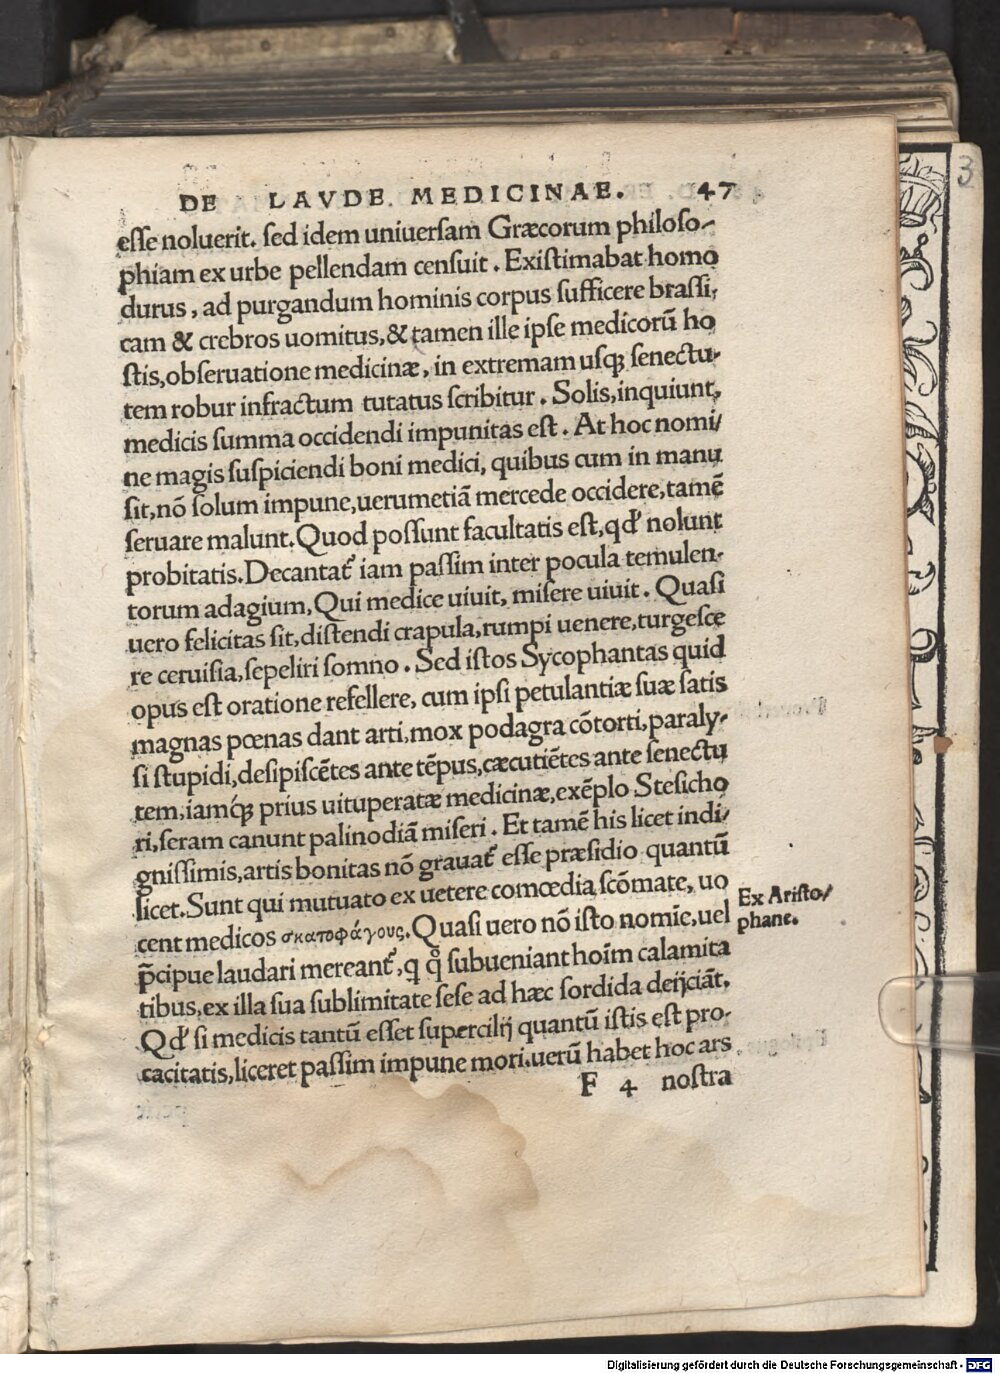 DE LAVDE MEDICINAE. 47
esse noluerit. sed idem uniuersam Græcorum philoso-
phiam ex urbe pellendam censuit. Existimabat homo
durus, ad purgandum hominis corpus sufficere brassi-
cam & crebros uomitus, & tamen ille ipse medicorũ ho
stis, obseruatione medicinæ, in extremam usq; senectu-
tem robur infractum tutatus scribitur. Solis, inquiunt,
medicis summa occidendi impunitas est. At hoc nomi/
ne magis suspiciendi boni medici, quibus cum in manu
sit, nõ solum impune, uerumetiã mercede occidere, tamẽ
seruare malunt. Quod possunt facultatis est, qd' nolunt
probitatis. Decantat' iam passim inter pocula temulen-
torum adagium, Qui medice uiuit, misere uiuit. Quasi
uero felicitas sit, distendi crapula, rumpi uenere, turgesce
re ceruisia, sepeliri somno. Sed istos Sycophantas quid
opus est oratione refellere, cum ipsi petulantiæ suæ satis
magnas pœnas dant arti, mox podagra cõtorti, paraly-
si stupidi, desipiscẽtes ante tẽpus, cæcutiẽtes ante senectu
tem, iamq; prius uituperatæ medicinæ, exẽplo Stesicho
ri, seram canunt palinodiã miseri. Et tamẽ his licet indi/
gnissimis, artis bonitas nõ grauat' esse præsidio quantũ
licet. Sunt qui mutuato ex uetere comœdia scõmate, uo
cent medicos σκατοφάγους. Quasi uero nõ isto nomĩe, uel
p̃cipue laudari mereant', q qͦ subueniant hoĩm calamita
tibus, ex illa sua sublimitate sese ad hæc sordida deijciãt.
Qd' si medicis tantũ esset supercilij quantũ istis est pro-
cacitatis, liceret passim impune mori. uerũ habet hoc ars
F 4 nostra
Ex Aristo/
phane.
3
Digitalisierung gefördert durch die Deutsche Forschungsgemeinschaft - DFG